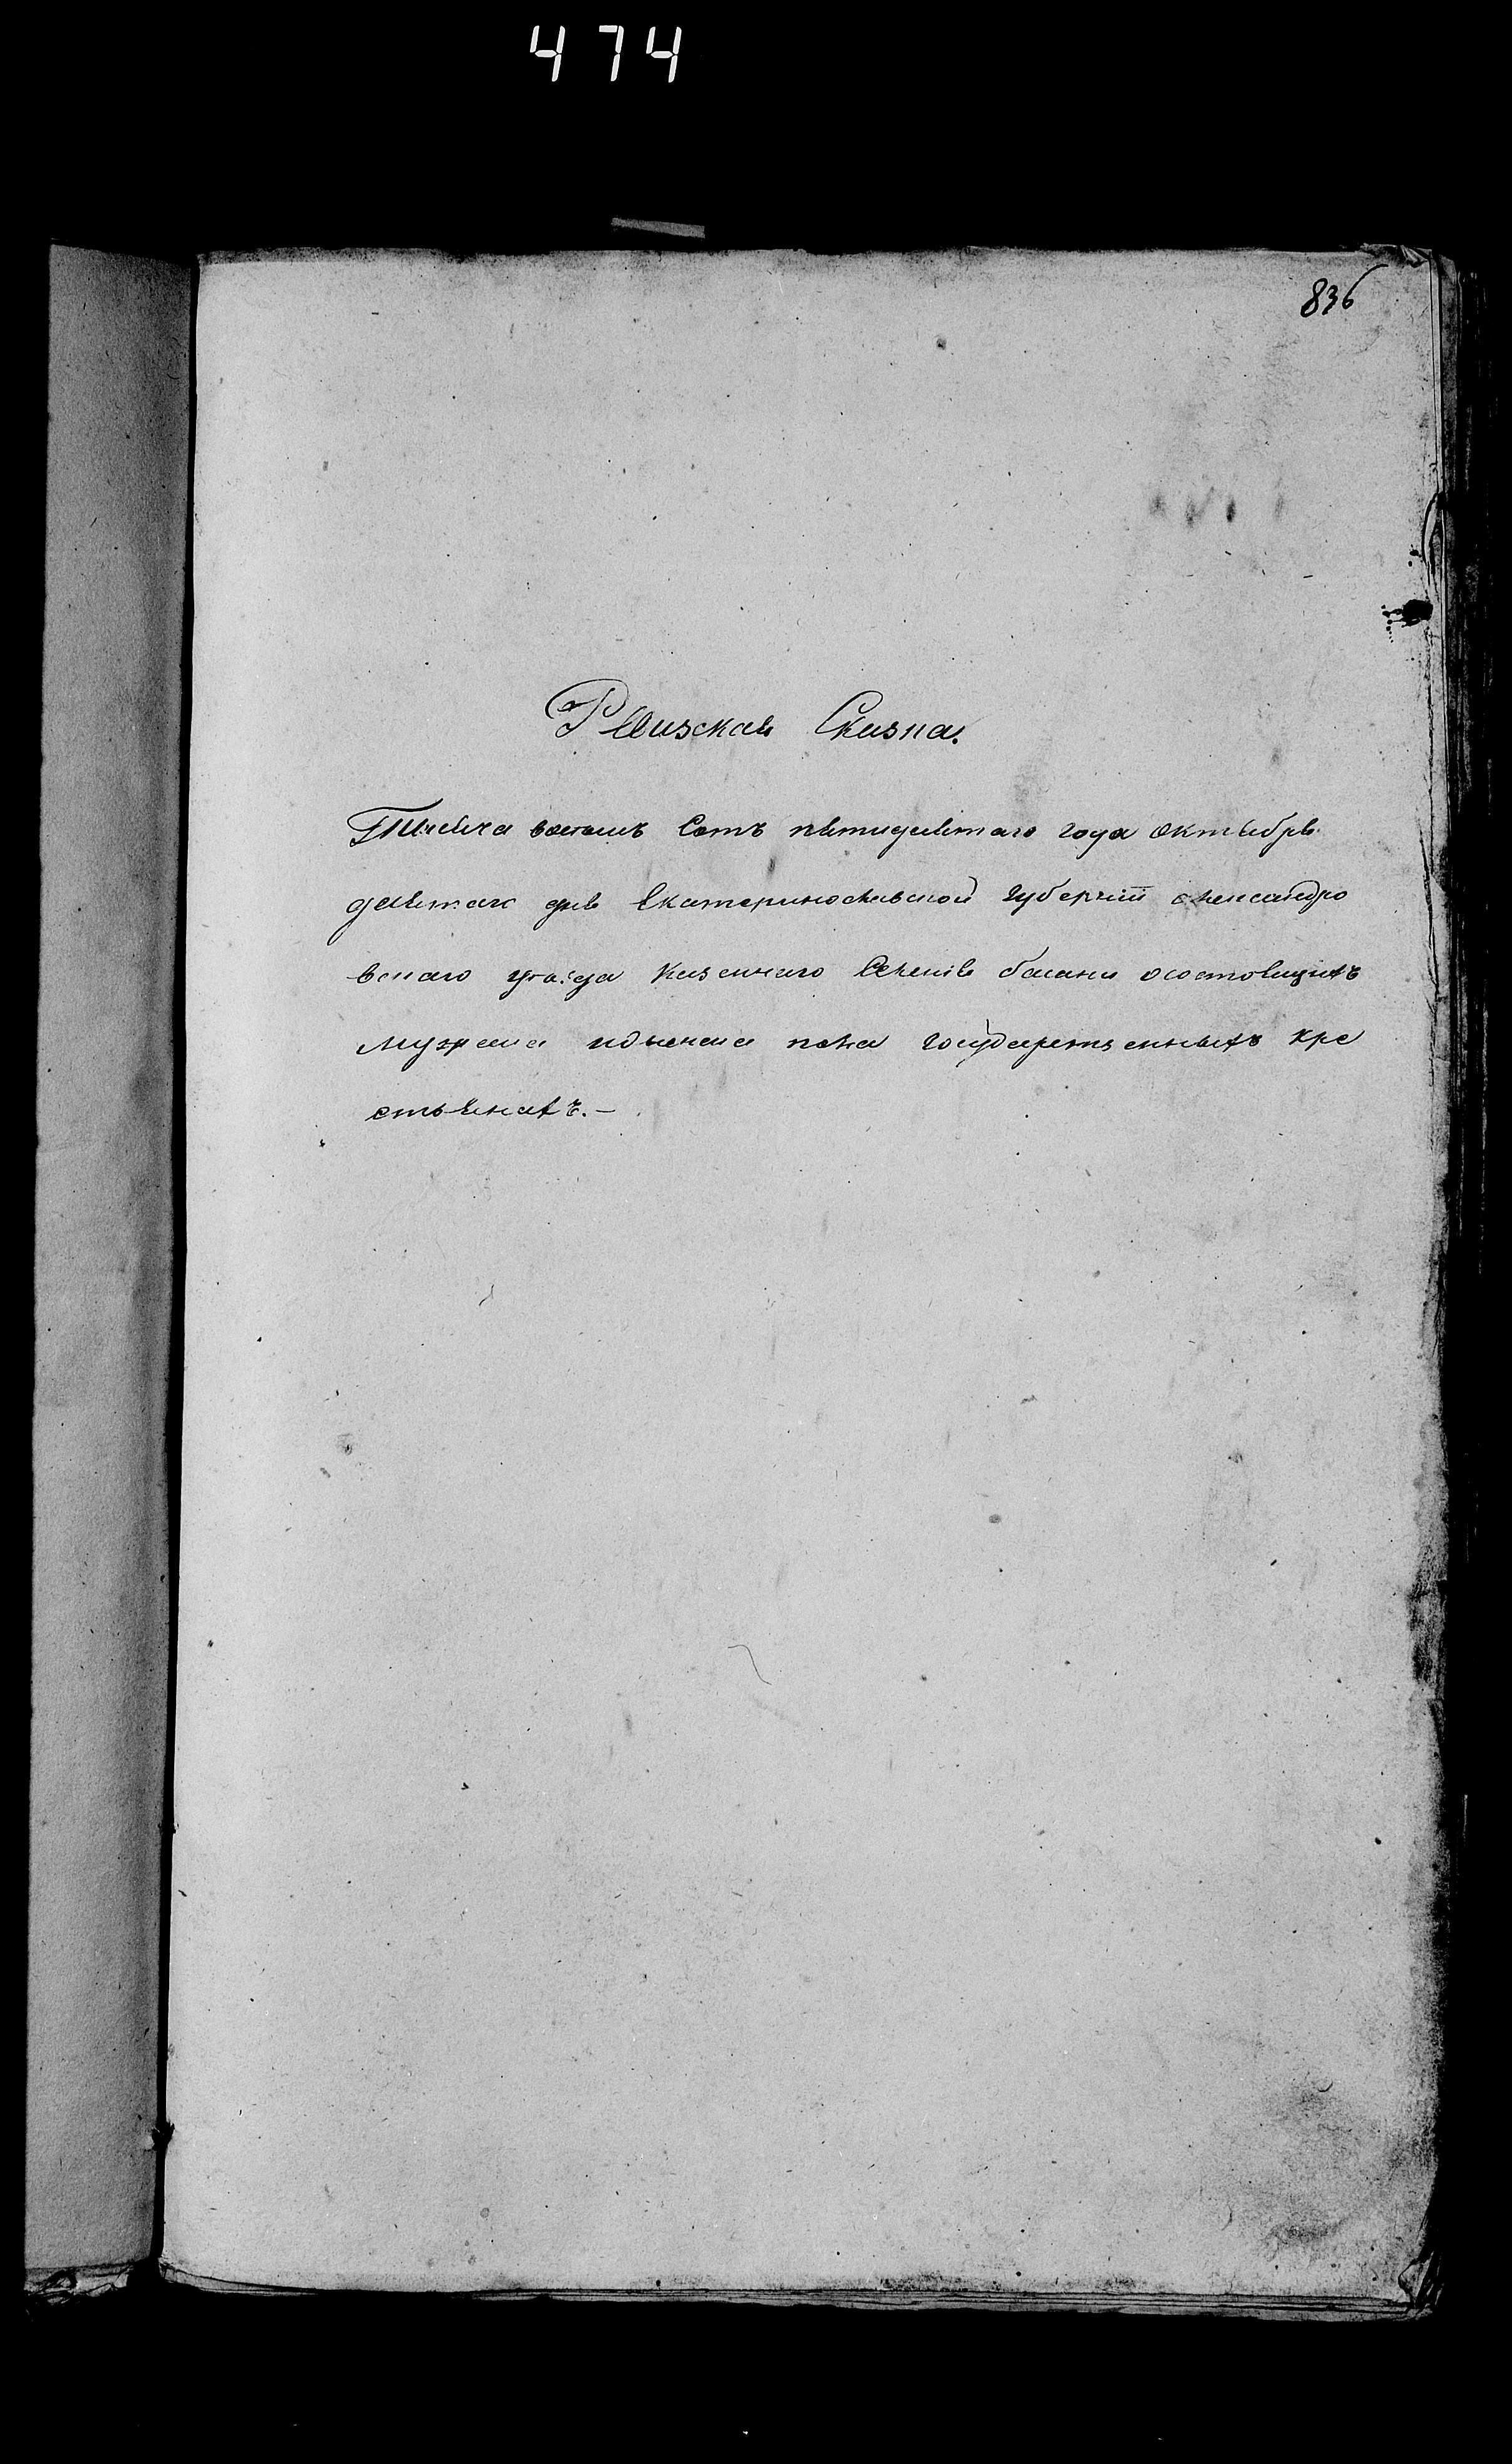 474
836
Ревизская Сказка.
Тысяча восемь Сотъ пятидесятаго года октября
девятаго дня Екатеринославской губерніи александро
вскаго уѣзда казеннаго Селенія басани о состоящихъ
мужеска иженска пола государственныхъ кре
стьянахъ.—